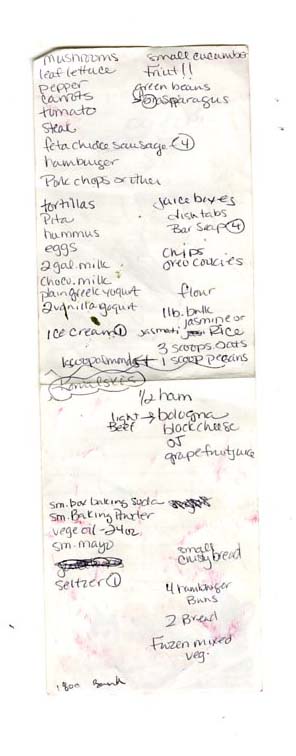 mushrooms
leaf lettuce
pepper
carrots
tomato
steak
feta chicke sausage 4
hamburger
Pork chops or other
small cucumber
fruit!!
green beans
asparagus
tortillas
Pita
hummus
eggs
2 gal. milk
choco. milk
plain greek yogurt
2 vanilla yogurt
ice cream 1
juice boxes
dish tabs
Bar Soap 4
chips
oreo cookies
flour
1 lb. bulk
jasmine or
Rice
3 scoops oats
1 scoop pecans
1/2 ham
light → bologna
Beef
block cheese
OJ
grapefruit juice
sm. box baking soda
sm. Baking Powder
vege oil - 24 oz
sm. mayo
seltzer 1
small
crusty bread
4 hamburger
Buns
2 Bread
Frozen mixed
veg.